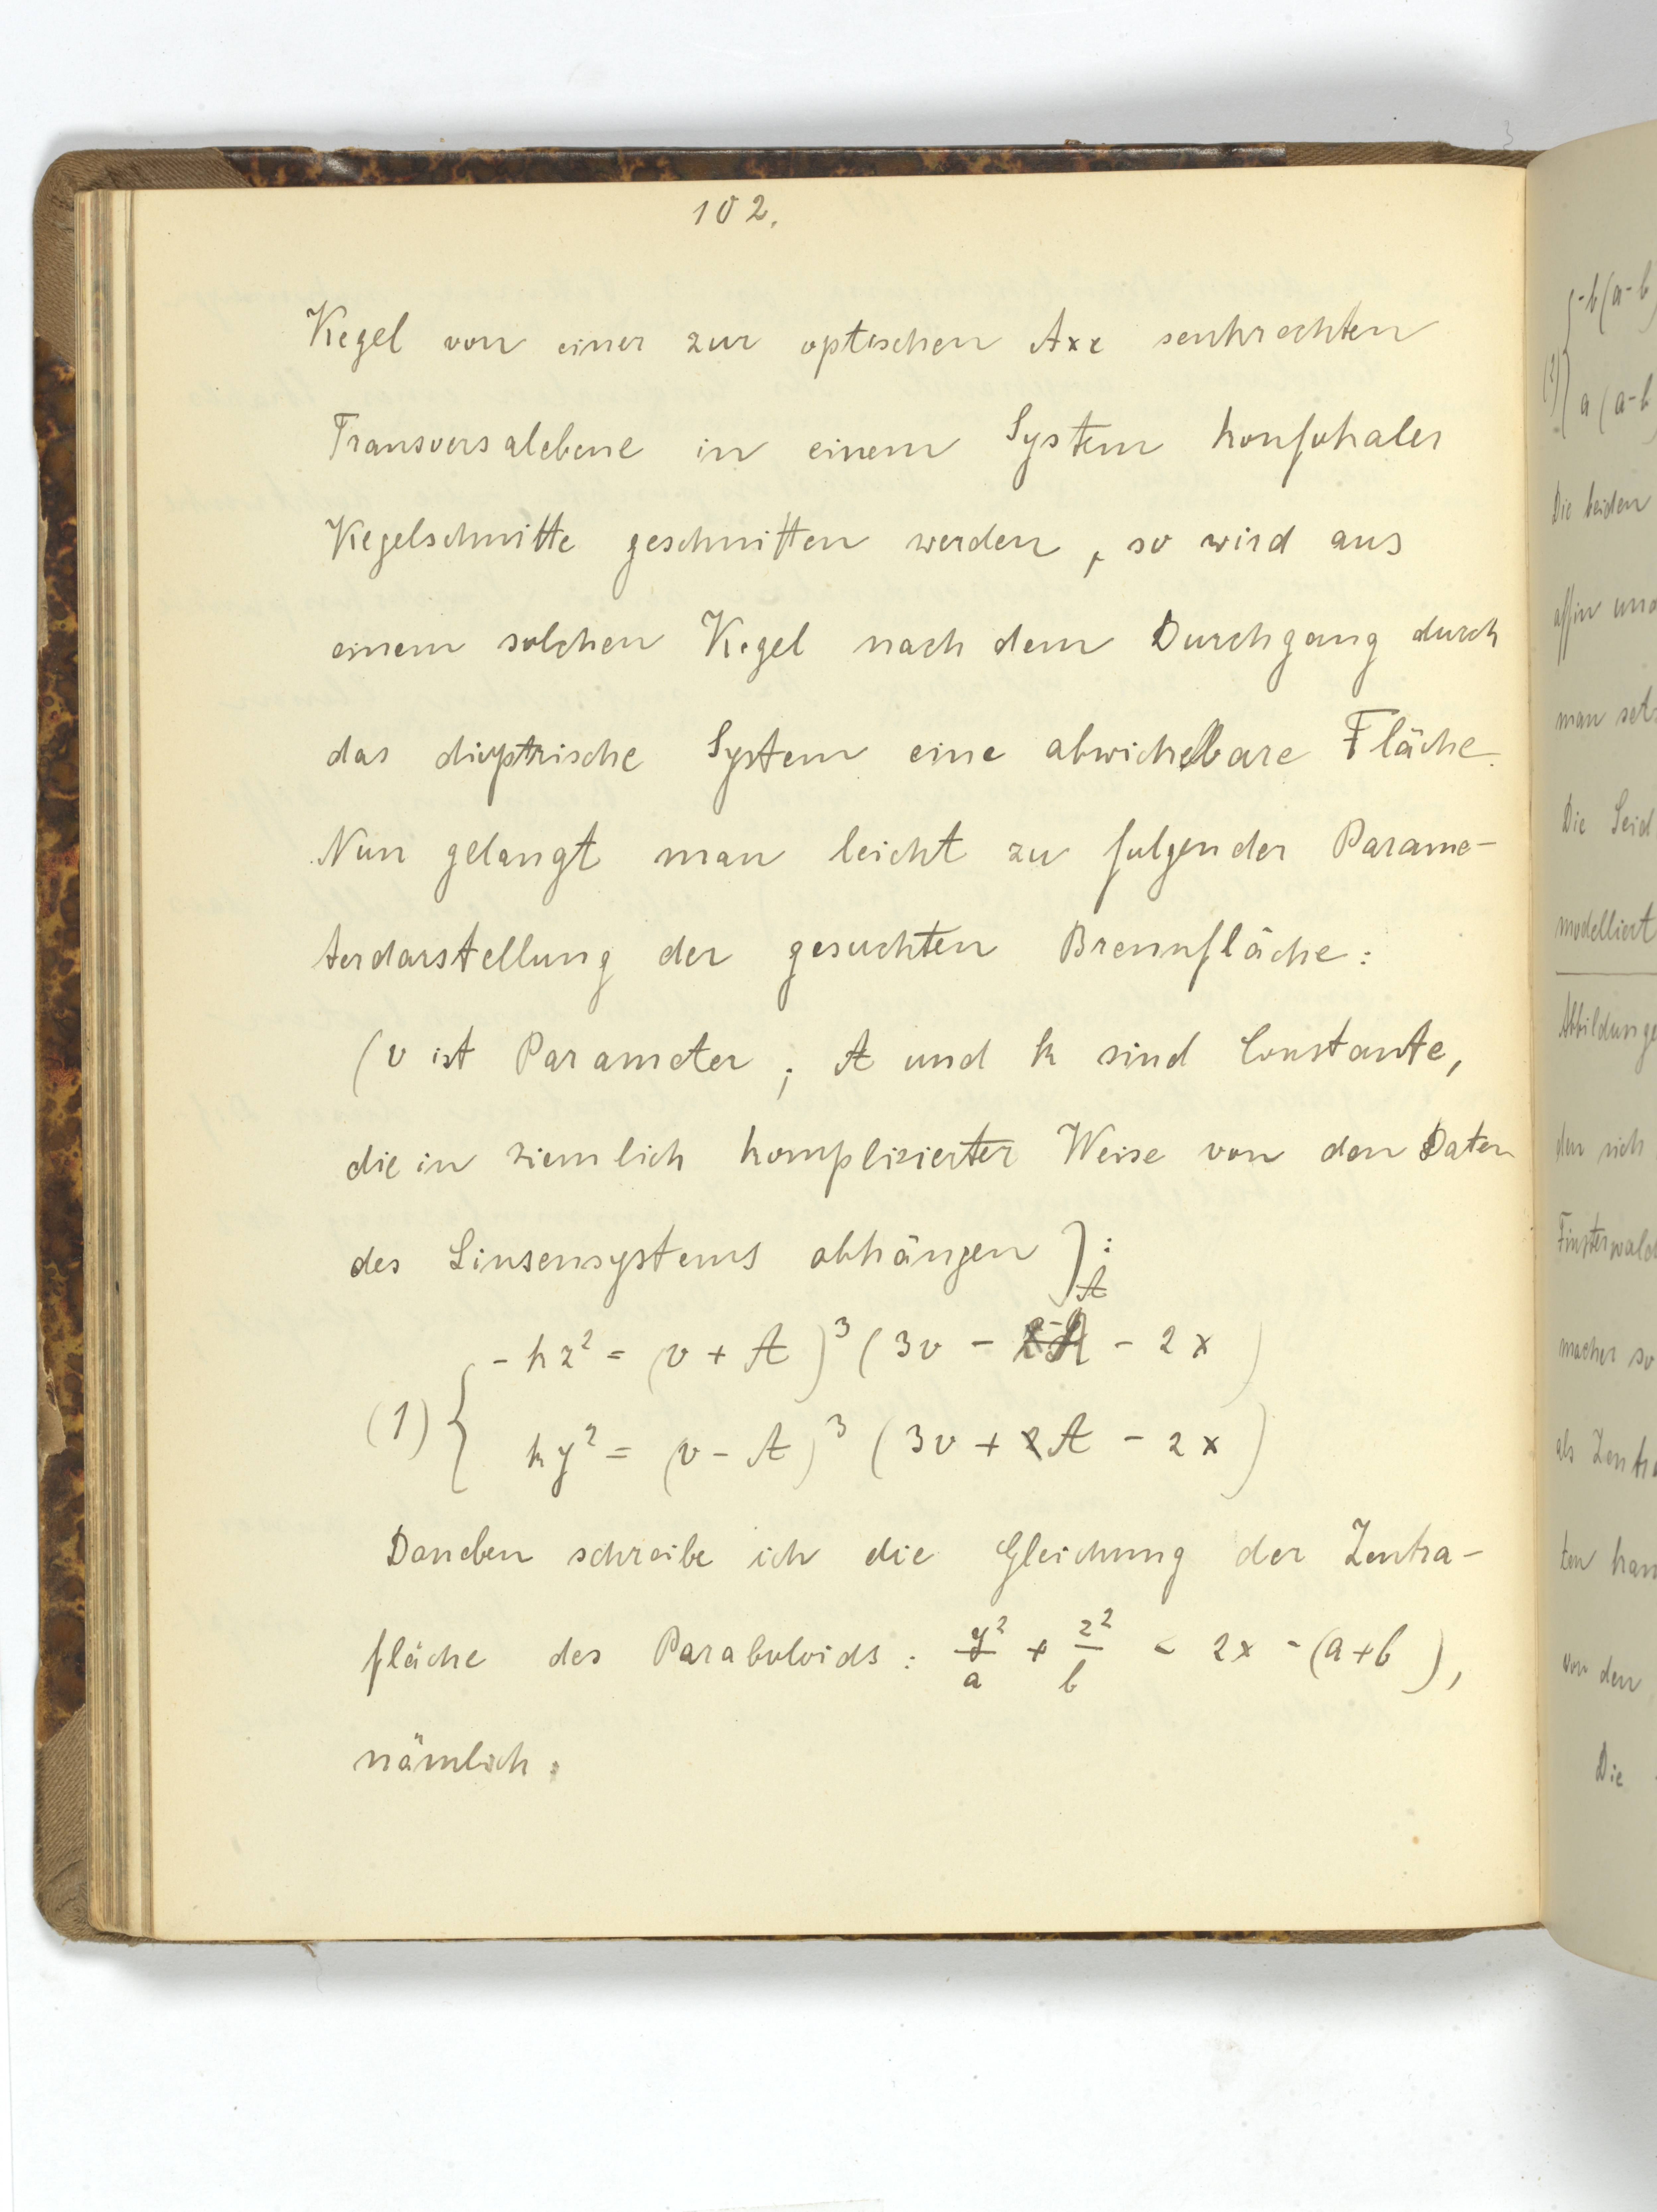 102.
Kegel von einer zur optischen Axe senkrechten
Transversalebene in einem System konfokaler
Kegelschnitte geschnitten werden, so wird aus
einem solchen Kegel nach dem Durchgang durch
das dioptrische System eine abwickelbare Fläche.
Nun gelangt man leicht zu folgender Parame-
terdarstellung der gesuchten Brennfläche:
(v ist Parameter; A und k sind Constante,
die in ziemlich komplizierter Weise von den Daten
des Linsensystems abhängen):
(1) { - kz² = (v + A)³ (3v - A - 2x)
ky² = (v - A)³ (3v + A - 2x)
Daneben schreibe ich die Gleichung der Zentra-
fläche des Paraboloids: y²/a + z²/b = 2x - (a+b),
nämlich:
-b(a-b
(2) { a(a-b
Die beiden
affin und
man setz
Die Seid
modelliert
Abbildunge
den sich
Finsterwald
macher so
als Zentra
ten kan
von den
Die